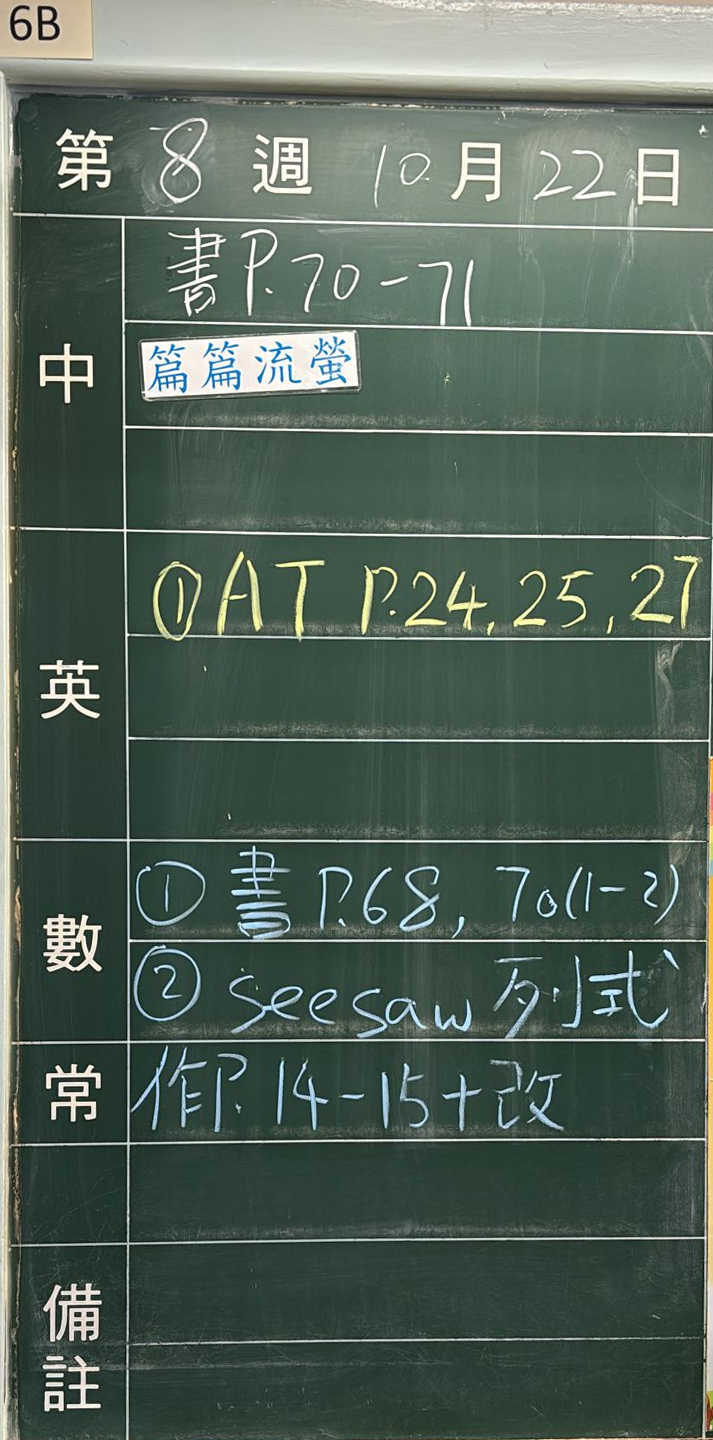 6B
第 8 週 10 月 22 日
中
書P.70-71
篇篇流螢
英
①AT P.24, 25, 27
數
① 書 P.68, 70(1-2)
② seesaw 列式
常
作P. 14-15+改
備註